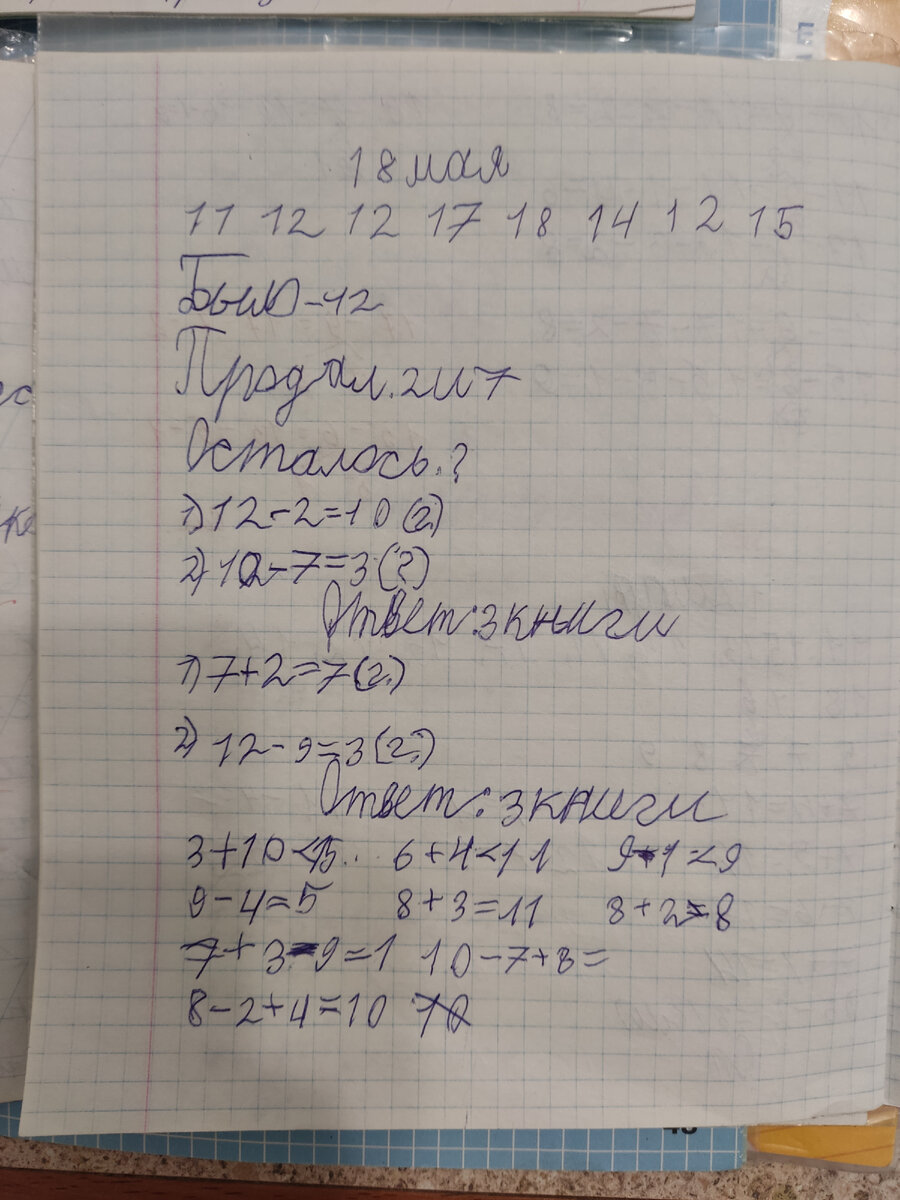 18 мая
11 12 12 17 18 14 12 15
Было-12
Продал. 2 и 7
Осталось.?
1) 12-2=10(г.)
2) 10-7=3(г.)
Ответ: 3 книги
1) 7+2=7(г.)
2) 12-9=3(г.)
Ответ: 3 книги
3+10<15.. 6+4<11 9+1<9
9-4=5 8+3=11 8+2>8
7+3-9=1 10-7+8=
8-2+4=10 10